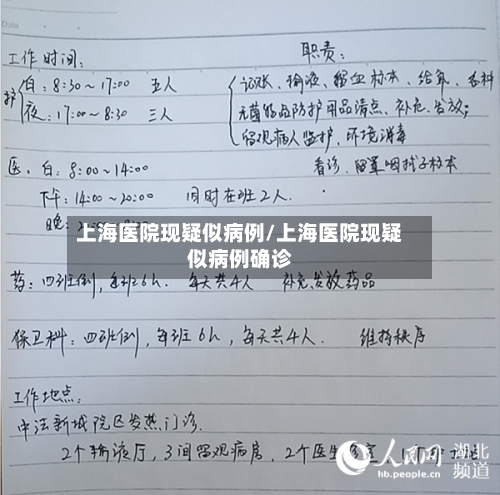 Date
工作时间:
职责:
护
白: 8:30~17:00 五人
记账、输液、留血标本、给氧、各种
夜: 17:00~8:30 三人
无菌物品防护用品清点、补充、发放;
留观病人监护、环境消毒
医: 白: 8:00~14:00
看诊、留置咽拭子标本
下午: 14:00~20:00 同时在班2人.
晚:
上海医院现疑似病例/上海医院现疑
似病例确诊
药: 四班倒, 每班6h. 每天共4人 补充、发放药品
保卫科: 四班倒, 每班6h, 每天共4人. 维持秩序
工作地点:
中法新城院区发热门诊.
2个输液厅, 3间留观病房, 2个医生
人民网 湖北
hb.people.com.cn 频道